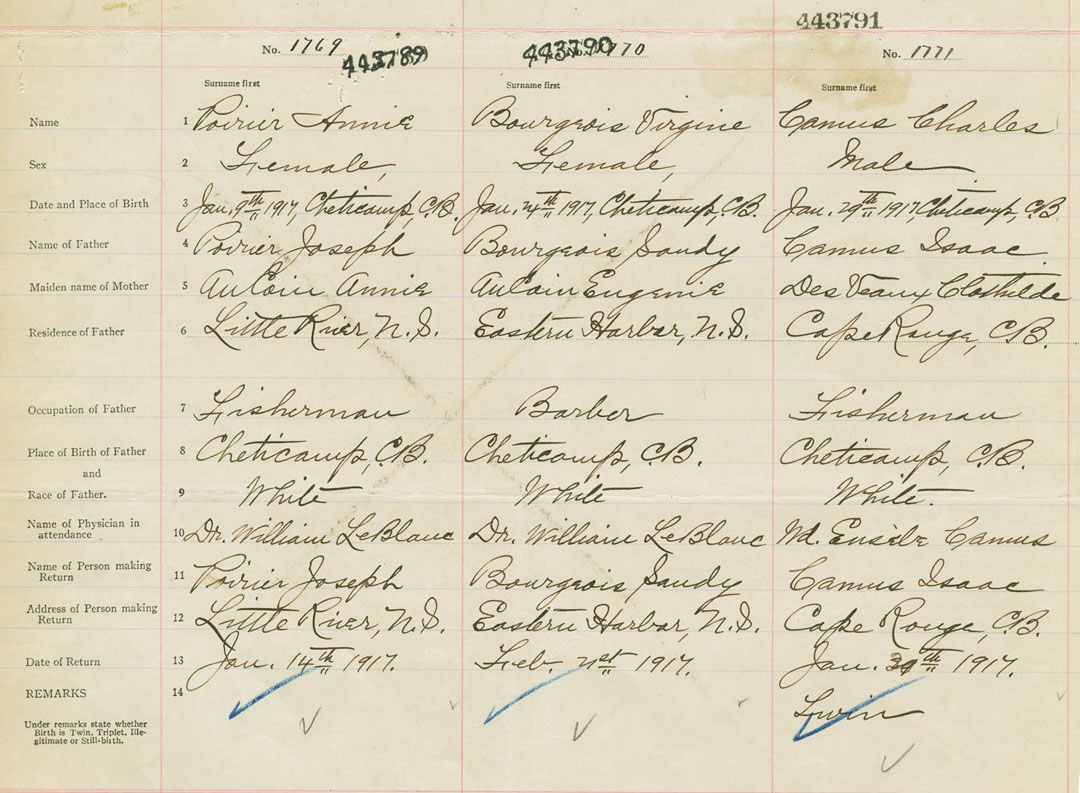 443791
No. 1769 443789 443790 No. 1770 No. 1771
Surname first Surname first Surname first
Name 1 Poirier Annie Bourgeois Virgine Camus Charles
Sex 2 Female, Female, Male
Date and Place of Birth 3 Jan. 9th 1917, Cheticamp, C.B. Jan. 1917, Cheticamp, C.B. Jan. 29th 1917 Cheticamp, C.B.
Name of Father 4 Poirier Joseph Bourgeois Sandy Camus Isaac
Maiden name of Mother 5 AuCoin Annie AuCoin Eugenie DesVeaux Clothilde
Residence of Father 6 Little River, N.S. Eastern Harbor, N.S. Cape Rouge, C.B.
Occupation of Father 7 Fisherman Barber Fisherman
Place of Birth of Father 8 Cheticamp, C.B. Cheticamp, C.B. Cheticamp, C.B.
and
Race of Father. 9 White White White.
Name of Physician in
attendance 10 Dr. William LeBlanc Dr. William LeBlanc Camus
Name of Person making
Return 11 Poirier Joseph Bourgeois Sandy Camus Isaac
Address of Person making
Return 12 Little River, N.S. Eastern Harbor, N.S. Cape Rouge, C.B.
Date of Return 13 Jan. 14th 1917. Feb. 1917. Jan. 1917.
REMARKS 14 Twin
Under remarks state whether
Birth is Twin, Triplet, Ille-
gitimate or Still-birth.